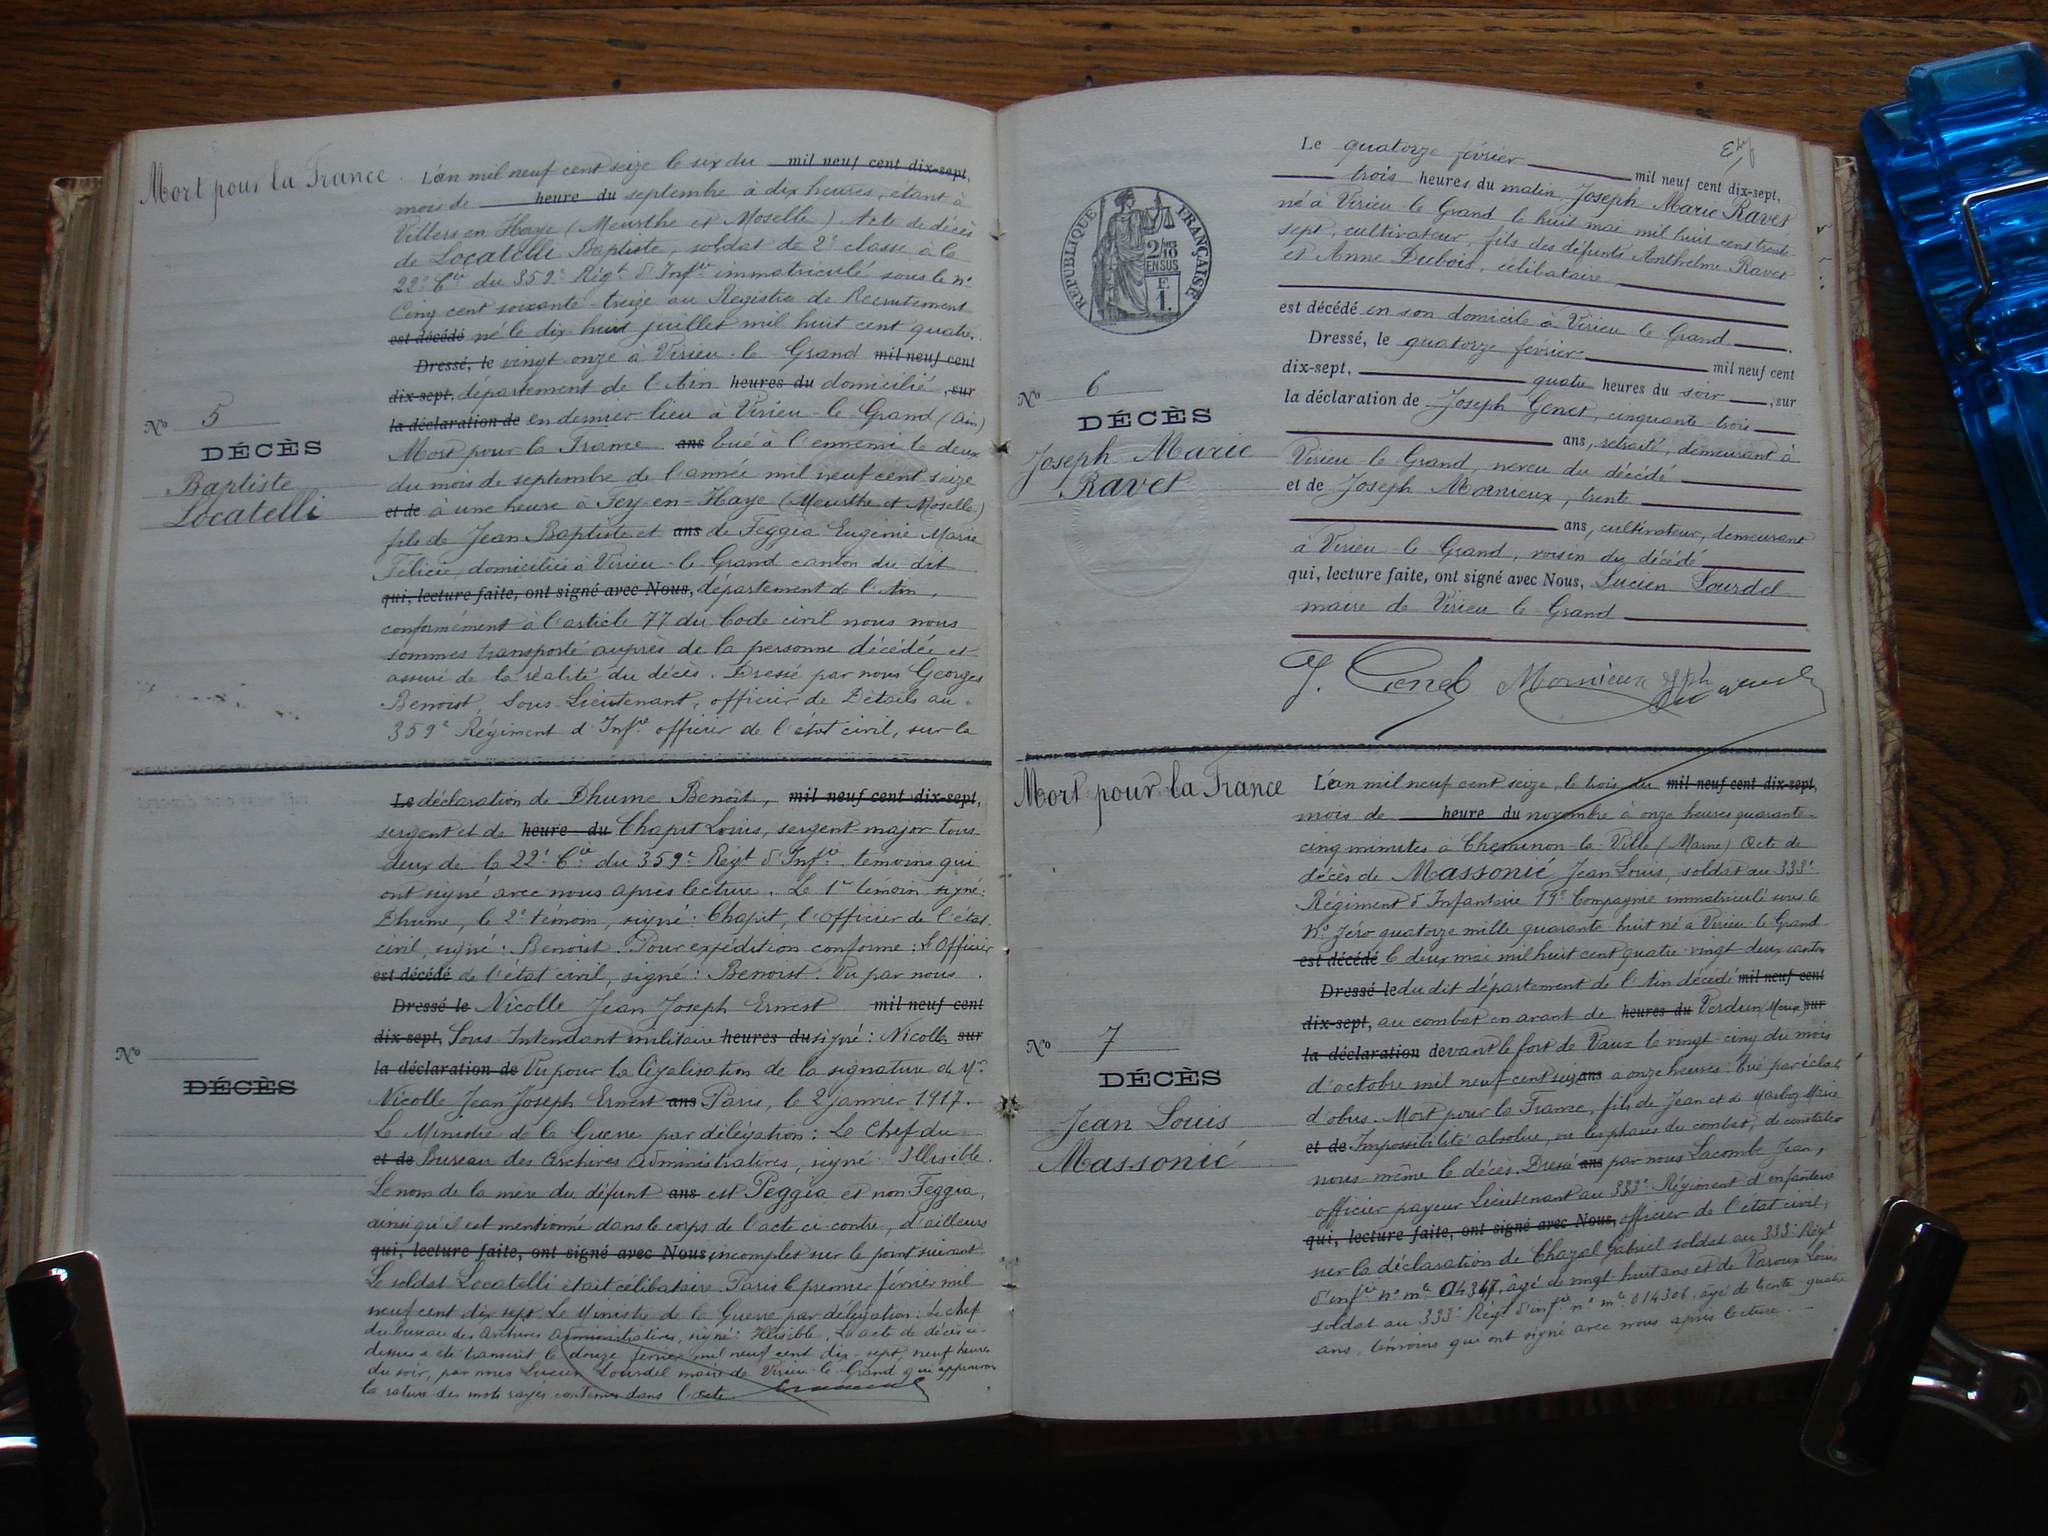 Mort pour la France.
L'an mil neuf cent seize le six du mil neuf cent dix-sept,
mois de heure du septembre à dix heures, étant à
Villers en Haye (Meurthe et Moselle) Acte de décès
de Locatelli Baptiste, soldat de 2e classe à la
22e Cie du 359e Régt d'Infrie immatriculé sous le no
Cinq cent soixante-treize au Registre de Recrutement
est décédé né le dix huit juillet mil huit cent quatre.
Dressé, le vingt onze à Virieu-le-Grand mil neuf cent
dix-sept, département de l'Ain heures du domicilié, sur
No 5
la déclaration de en dernier lieu à Virieu-le-Grand (Ain)
DÉCÈS
Mort pour la France. ans tué à l'ennemi le deux
Baptiste
du mois de septembre de l'année mil neuf cent seize
Locatelli
et de à une heure à Fey-en-Haye (Meurthe et Moselle)
fils de Jean Baptiste et ans de Feggia Eugénie Marie
domiciliés à Virieu-le-Grand canton du dit
qui, lecture faite, ont signé avec Nous, département de l'Ain,
conformément à l'article 77 du Code civil nous nous
sommes transporté auprès de la personne décédée et
assuré de la réalité du décès. Dressé par nous Georges
Benoist, Sous-Lieutenant, officier de Détails au
359e Régiment d'Infie officier de l'état civil, sur la
Le déclaration de Dhume Benoît, mil neuf cent dix-sept,
sergent et de heure du Chapit Louis, sergent major tous
deux de la 22e Cie du 359e Régt d'Infie témoins qui
ont signé avec nous après lecture. Le 1er témoin signé:
Dhume, le 2e témoin, signé: Chapit, l'officier de l'état
civil, signé: Benoist. Pour expédition conforme: L'Officier
est décédé de l'état civil, signé: Benoist. Vu par nous
Dressé le Nicolle Jean Joseph Ernest mil neuf cent
dix-sept, Sous Intendant militaire heures du signé: Nicolle sur
No
la déclaration de Vu pour la légalisation de la signature de Mr
DÉCÈS
Nicolle Jean Joseph Ernest ans Paris, le 2 janvier 1917.
Le Ministre de la Guerre par délégation: Le Chef du
et de Bureau des Archives Administratives, signé: Illisible.
Le nom de la mère du défunt ans est Peggia et non Feggia,
ainsi qu'il est mentionné dans le corps de l'acte ci-contre, d'ailleurs
qui, lecture faite, ont signé avec Nous, incomplet sur le point suivant.
Le soldat Locatelli était célibataire Paris le premier février mil
neuf cent dix sept. Le Ministre de la Guerre par délégation: Le chef
du bureau des Archives administratives, signé: Illisible, L'acte de décès ci-
dessus a été transcrit le douze février mil neuf cent dix-sept, neuf heures
du soir, par nous Lucien Lourdel maire de Virieu-le-Grand qui approuvons
la rature des mots rayés contenus dans l'acte.
Le quatorze février mil neuf cent dix-sept,
trois heures du matin, Joseph Marie Ravet
né à Virieu le Grand le huit mai mil huit cent trente-
sept, cultivateur, fils des défunts Anthelme Ravet
et Anne Dubois, célibataire
RÉPUBLIQUE FRANÇAISE
2/10 EN SUS
F 1.
est décédé en son domicile à Virieu le Grand
Dressé, le quatorze février mil neuf cent
dix-sept, quatre heures du soir, sur
No 6
la déclaration de Joseph Genet, cinquante-trois
DÉCÈS
ans, retraité, demeurant à
Joseph Marie
Virieu le Grand, neveu du décédé
Ravet
et de Joseph Mornieux, trente
ans, cultivateur, demeurant
à Virieu le Grand, voisin du décédé
qui, lecture faite, ont signé avec Nous, Lucien Lourdel
maire de Virieu le Grand
J. Genet Mornieux Jph
Mort pour la France
L'an mil neuf cent seize, le trois du mil neuf cent dix-sept,
mois de heure du novembre à onze heures quarante-
cinq minutes à Cheminon-la-Ville (Marne) Acte de
décès de Massonié Jean Louis, soldat au 333e
Régiment d'Infanterie 19e Compagnie immatriculé sous le
No zéro quatorze mille quarante huit né à Virieu le Grand
est décédé le deux mai mil huit cent quatre-vingt deux canton
Dressé le du dit département de l'Ain décédé mil neuf cent
dix-sept, au combat en avant de heures du Verdun (Meuse) sur
No 7
la déclaration devant le fort de Vaux le vingt-cinq du mois
DÉCÈS
d'octobre mil neuf cent seize ans à onze heures. Tué par éclats
Jean Louis
d'obus. Mort pour la France, fils de Jean et de Marie
Massonié
et de Impossibilité absolue, vu les phases du combat, de constater
nous même le décès. Dressé ans par nous Lacombe Jean,
officier payeur Lieutenant au 333e Régiment d'infanterie
qui, lecture faite, ont signé avec Nous, officier de l'état civil,
sur la déclaration de Chazal Gabriel soldat au 333e Régt
d'infie no mle 04347, âgé de vingt-huit ans et de Varoux Louis
soldat au 333e Régt d'infie no mle 014306, âgé de trente-quatre
ans, témoins qui ont signé avec nous après lecture.